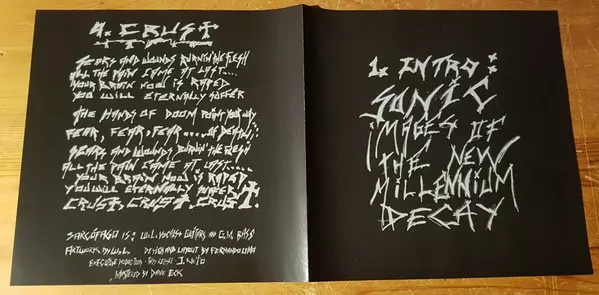 4. CRUST
SCARS AND WOUNDS BURNIN' THE FLESH
ALL THE PAIN CAME AT LAST....
YOUR BRAIN NOW IS RAPED
YOU WILL ETERNALLY SUFFER
THE HANDS OF DOOM POINT YOUR WAY
FEAR, FEAR, FEAR.....OF DEATH!
SCARS AND WOUNDS BURNIN' THE FLESH
ALL THE PAIN CAME AT LAST.....
YOUR BRAIN NOW IS RAPED.
YOU WILL ETERNALLY SUFFER!
CRUST, CRUST, CRUST.
SARCÓFAGO IS: W.L. VOCALS & GUITARS AND G.M. BASS
ARTWORK BY W.L. DESIGN AND LAYOUT BY FERNANDO LIMA
EXECUTIVE PRODUCTION - THIS RELEASE - J. NETO
MASTERED BY DAVE ECK
1. INTRO:
SONIC
IMAGES OF
THE NEW
MILLENNIUM
DECAY